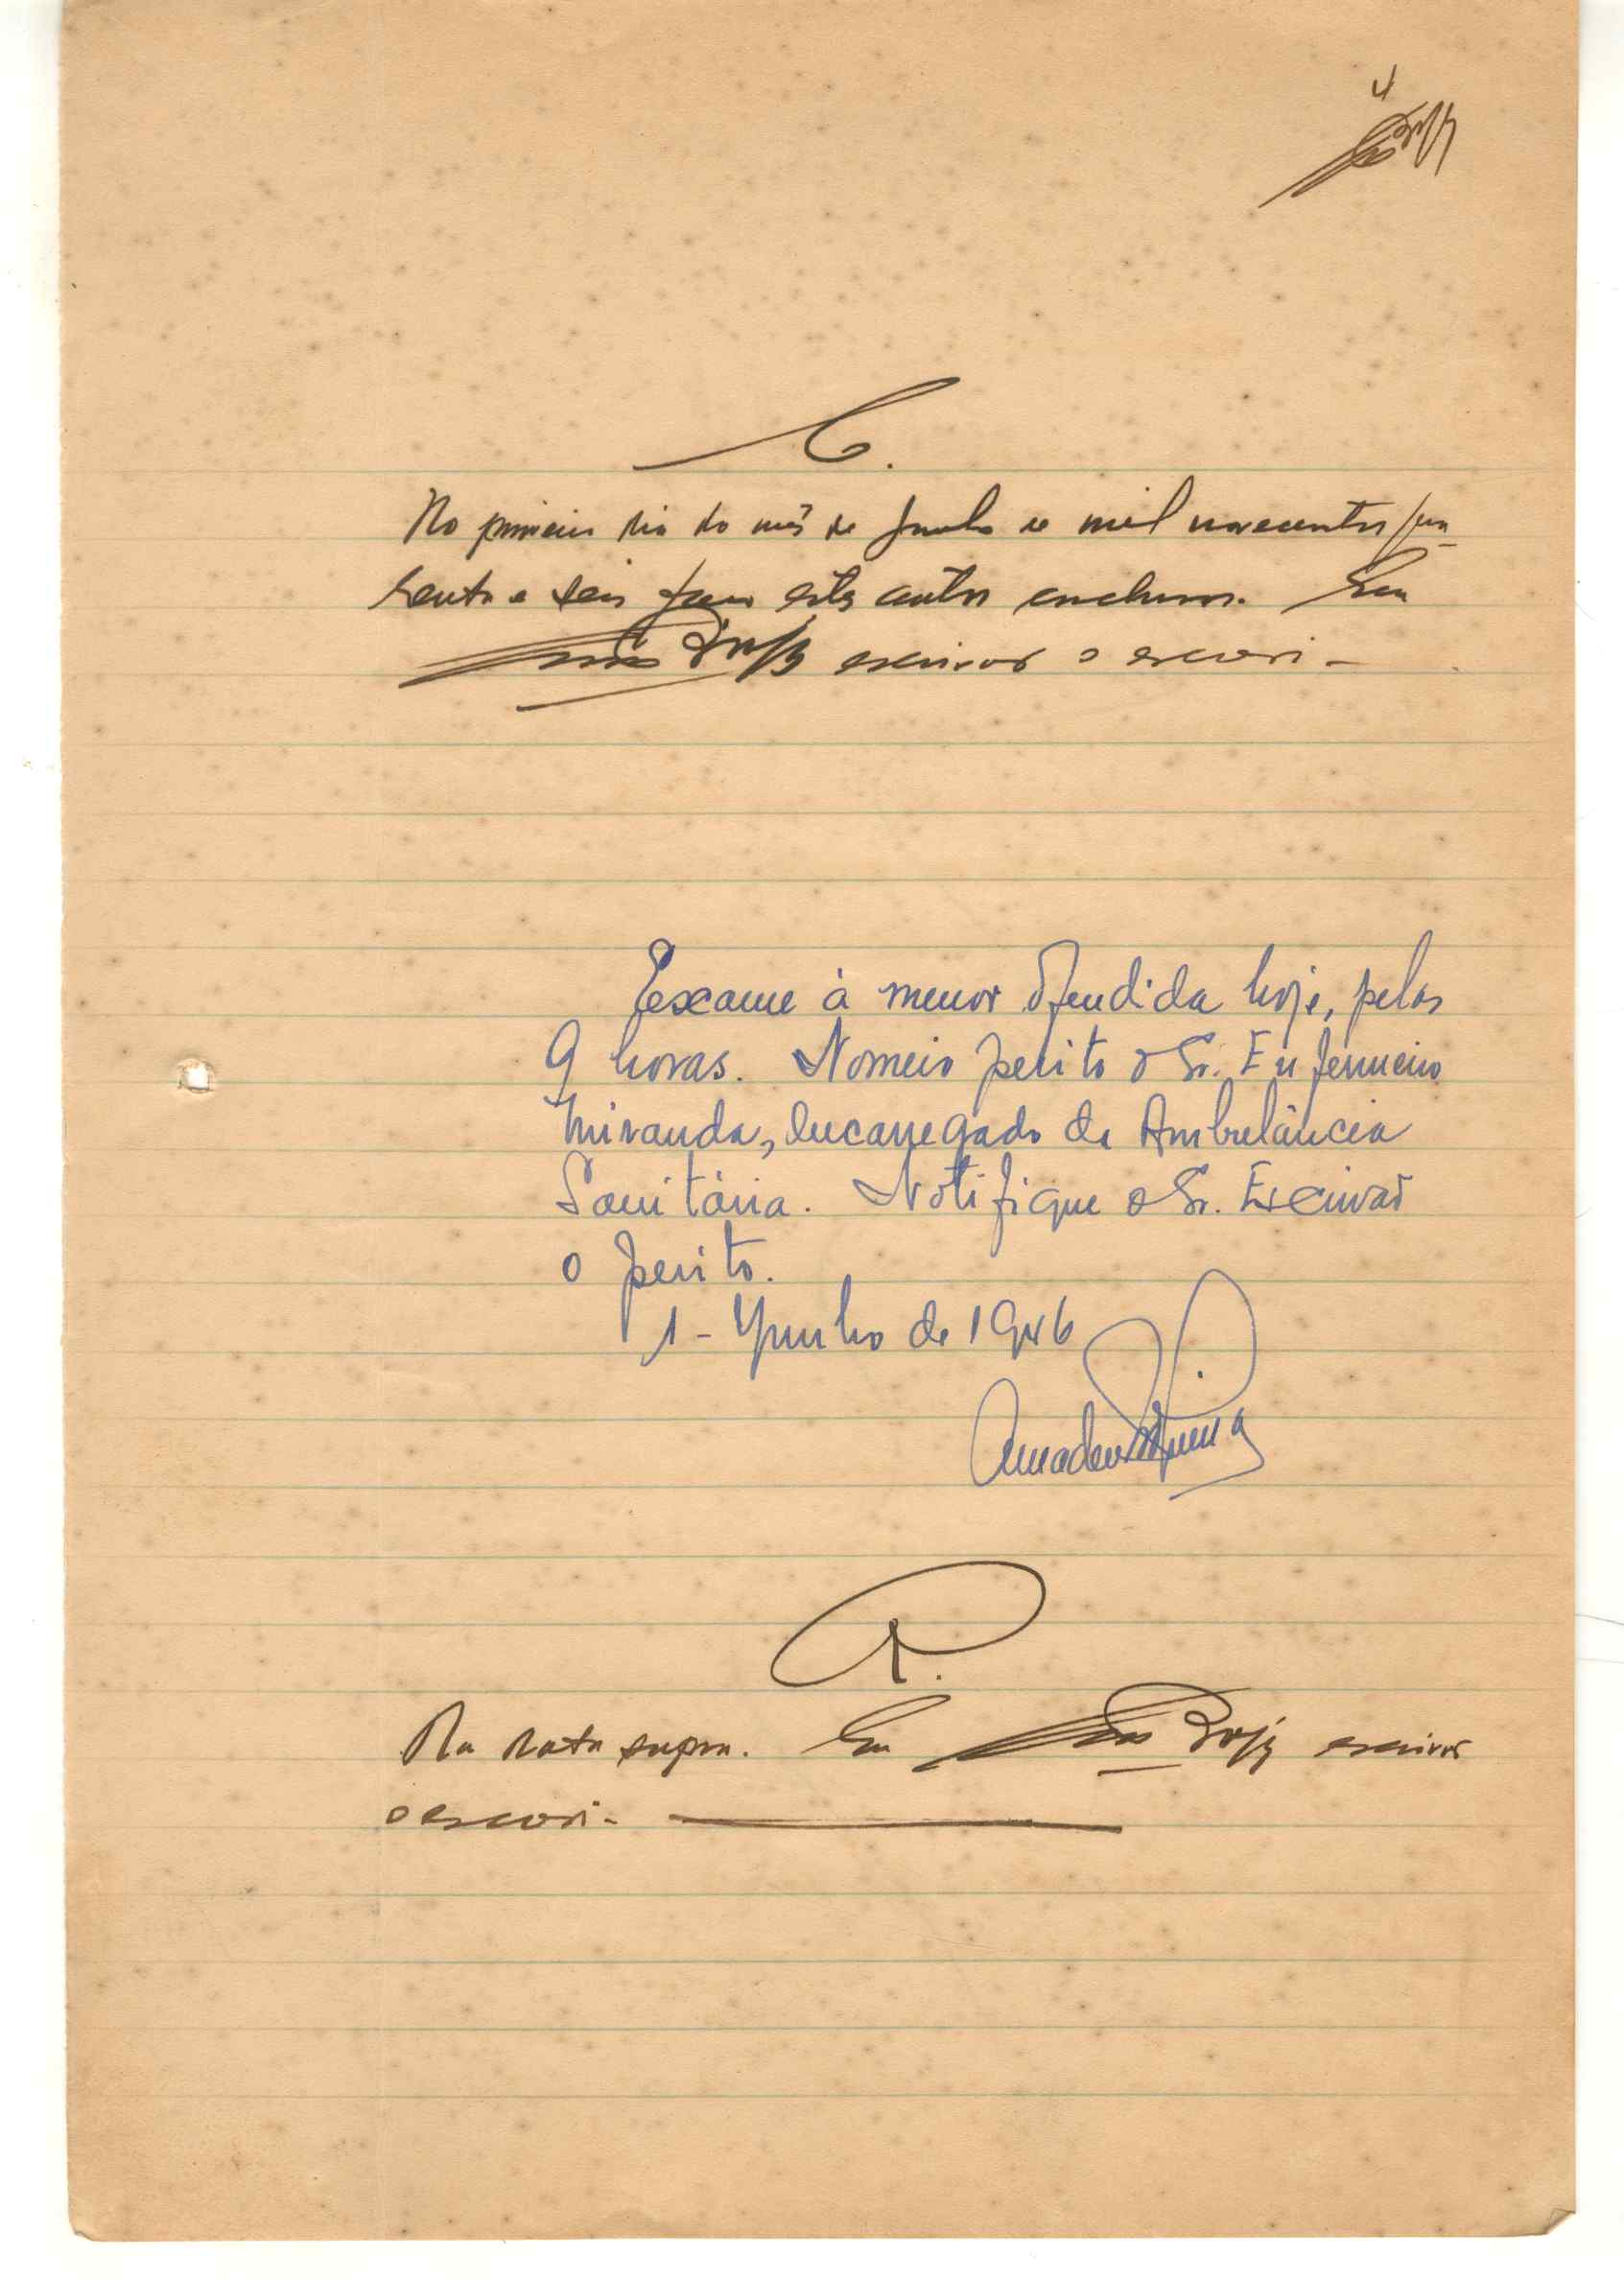 4
C.
No primeiro dia do mês de Junho de mil novecentos qua-
renta e seis faço estes autos conclusos. Eu
escrivão o escrevi-
Exame à menor ofendida hoje, pelas
9 horas. Nomeio perito o Sr. Enfermeiro
Miranda, Encarregado da Ambulância
Sanitária. Notifique o Sr. Escrivão
o perito.
1-Junho de 1946
Amadeu
R.
Na data supra. Eu escrivão
o escrevi-